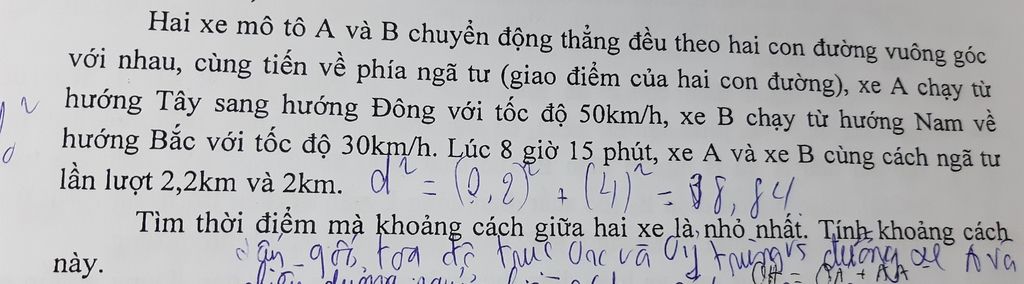 Hai xe mô tô A và B chuyển động thẳng đều theo hai con đường vuông góc
với nhau, cùng tiến về phía ngã tư (giao điểm của hai con đường), xe A chạy từ
hướng Tây sang hướng Đông với tốc độ 50km/h, xe B chạy từ hướng Nam về
hướng Bắc với tốc độ 30km/h. Lúc 8 giờ 15 phút, xe A và xe B cùng cách ngã tư
lần lượt 2,2km và 2km. d² = (2,2)² + (4)² =
Tìm thời điểm mà khoảng cách giữa hai xe là nhỏ nhất. Tính khoảng cách
này. gốc toạ độ trục và Oy trùng vs đường xe A và